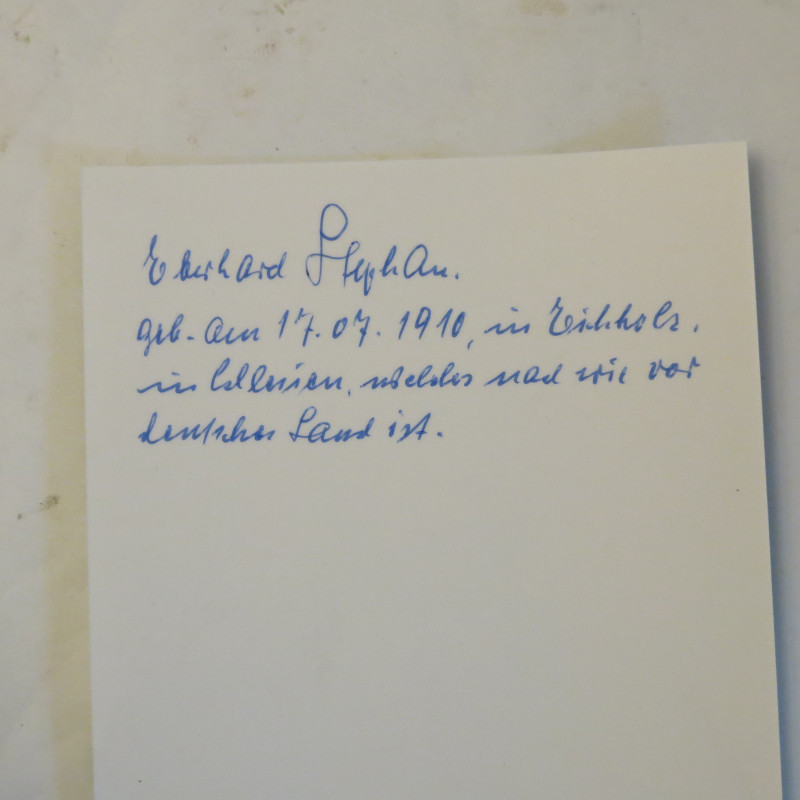 Eberhard Stephan.
geb. am 17.07.1910, in Eichholz,
in Schlesien, welches nach wie vor
deutsches Land ist.